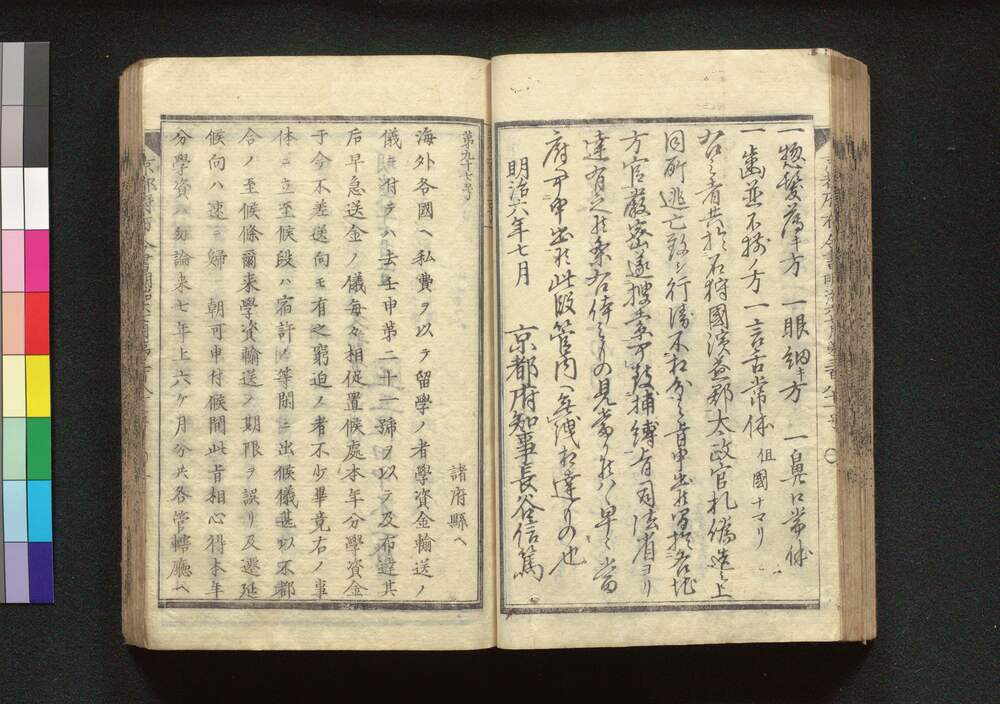 一惣髪薄キ方 一眼細キ方 一鼻口常体
一歯並不揃方 一言舌常体 但國ナマリ
右之者共於石狩國濱益郡太政官札偽造之上
同所逃亡致シ行衛不相分之旨申出候間於各地
方官厳密遂捜索可致捕縛旨司法省ヨリ
達有之候条右体之もの見当り候ハヽ早々当
府可申出候此段管内へ無洩相達するもの也
明治六年七月 京都府知事長谷信篤
第九十七号
諸府縣ヘ
海外各國ヘ私費ヲ以ラ留學ノ者學資金輸送ノ
儀ニ付ラハ去壬申第二十一號ヲ以ラ及布達其
后早急送金ノ儀毎々相促置候處本年分學資金
于今不差送向モ有之窮迫ノ者不少畢竟右ノ事
体ニ立至候段ハ宿許ノ等閑ニ出候儀甚以不都
合ノ至候條爾来學資輸送ノ期限ヲ誤リ及遷延
候向ハ速ニ歸朝可申付候間此旨相心得本年
分學資ハ勿論来七年上六ケ月分共各管轄廳ヘ